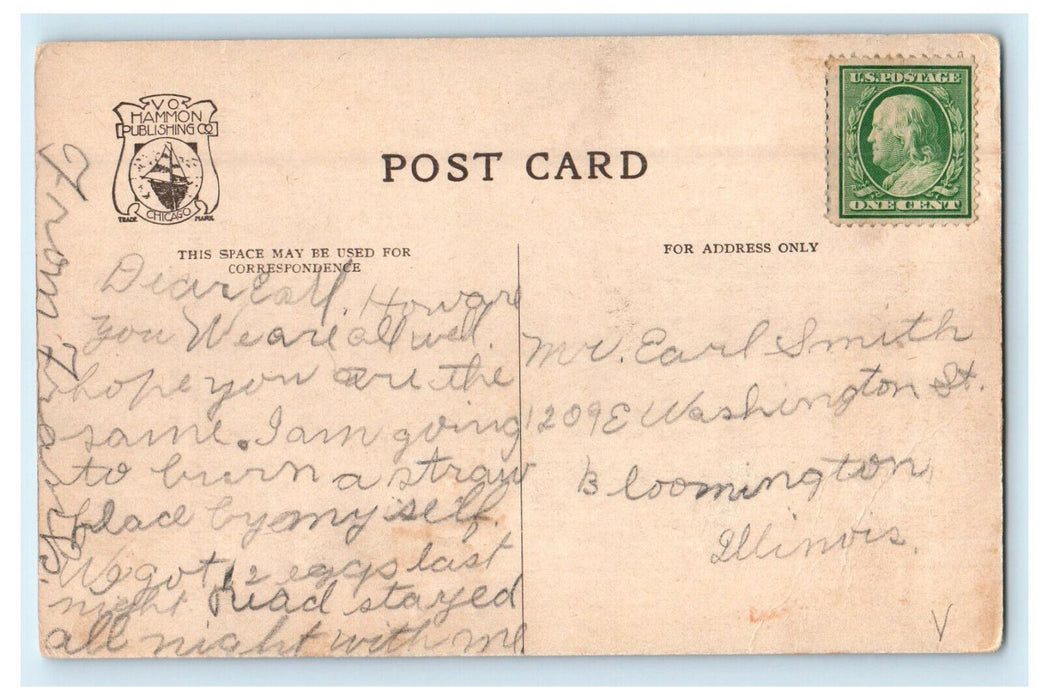 V O
HAMMON
PUBLISHING CO
CHICAGO
TRADE MARK
POST CARD
U.S. POSTAGE
ONE CENT
THIS SPACE MAY BE USED FOR
CORRESPONDENCE
FOR ADDRESS ONLY
Dear Earl. How are
you We are all well.
hope you are the
same. I am going
to burn a straw
place by my self.
We got 12 eggs last
night stayed
all night with me
From
Mr. Earl Smith
1209 E Washington St.
Bloomington,
Illinois.
V